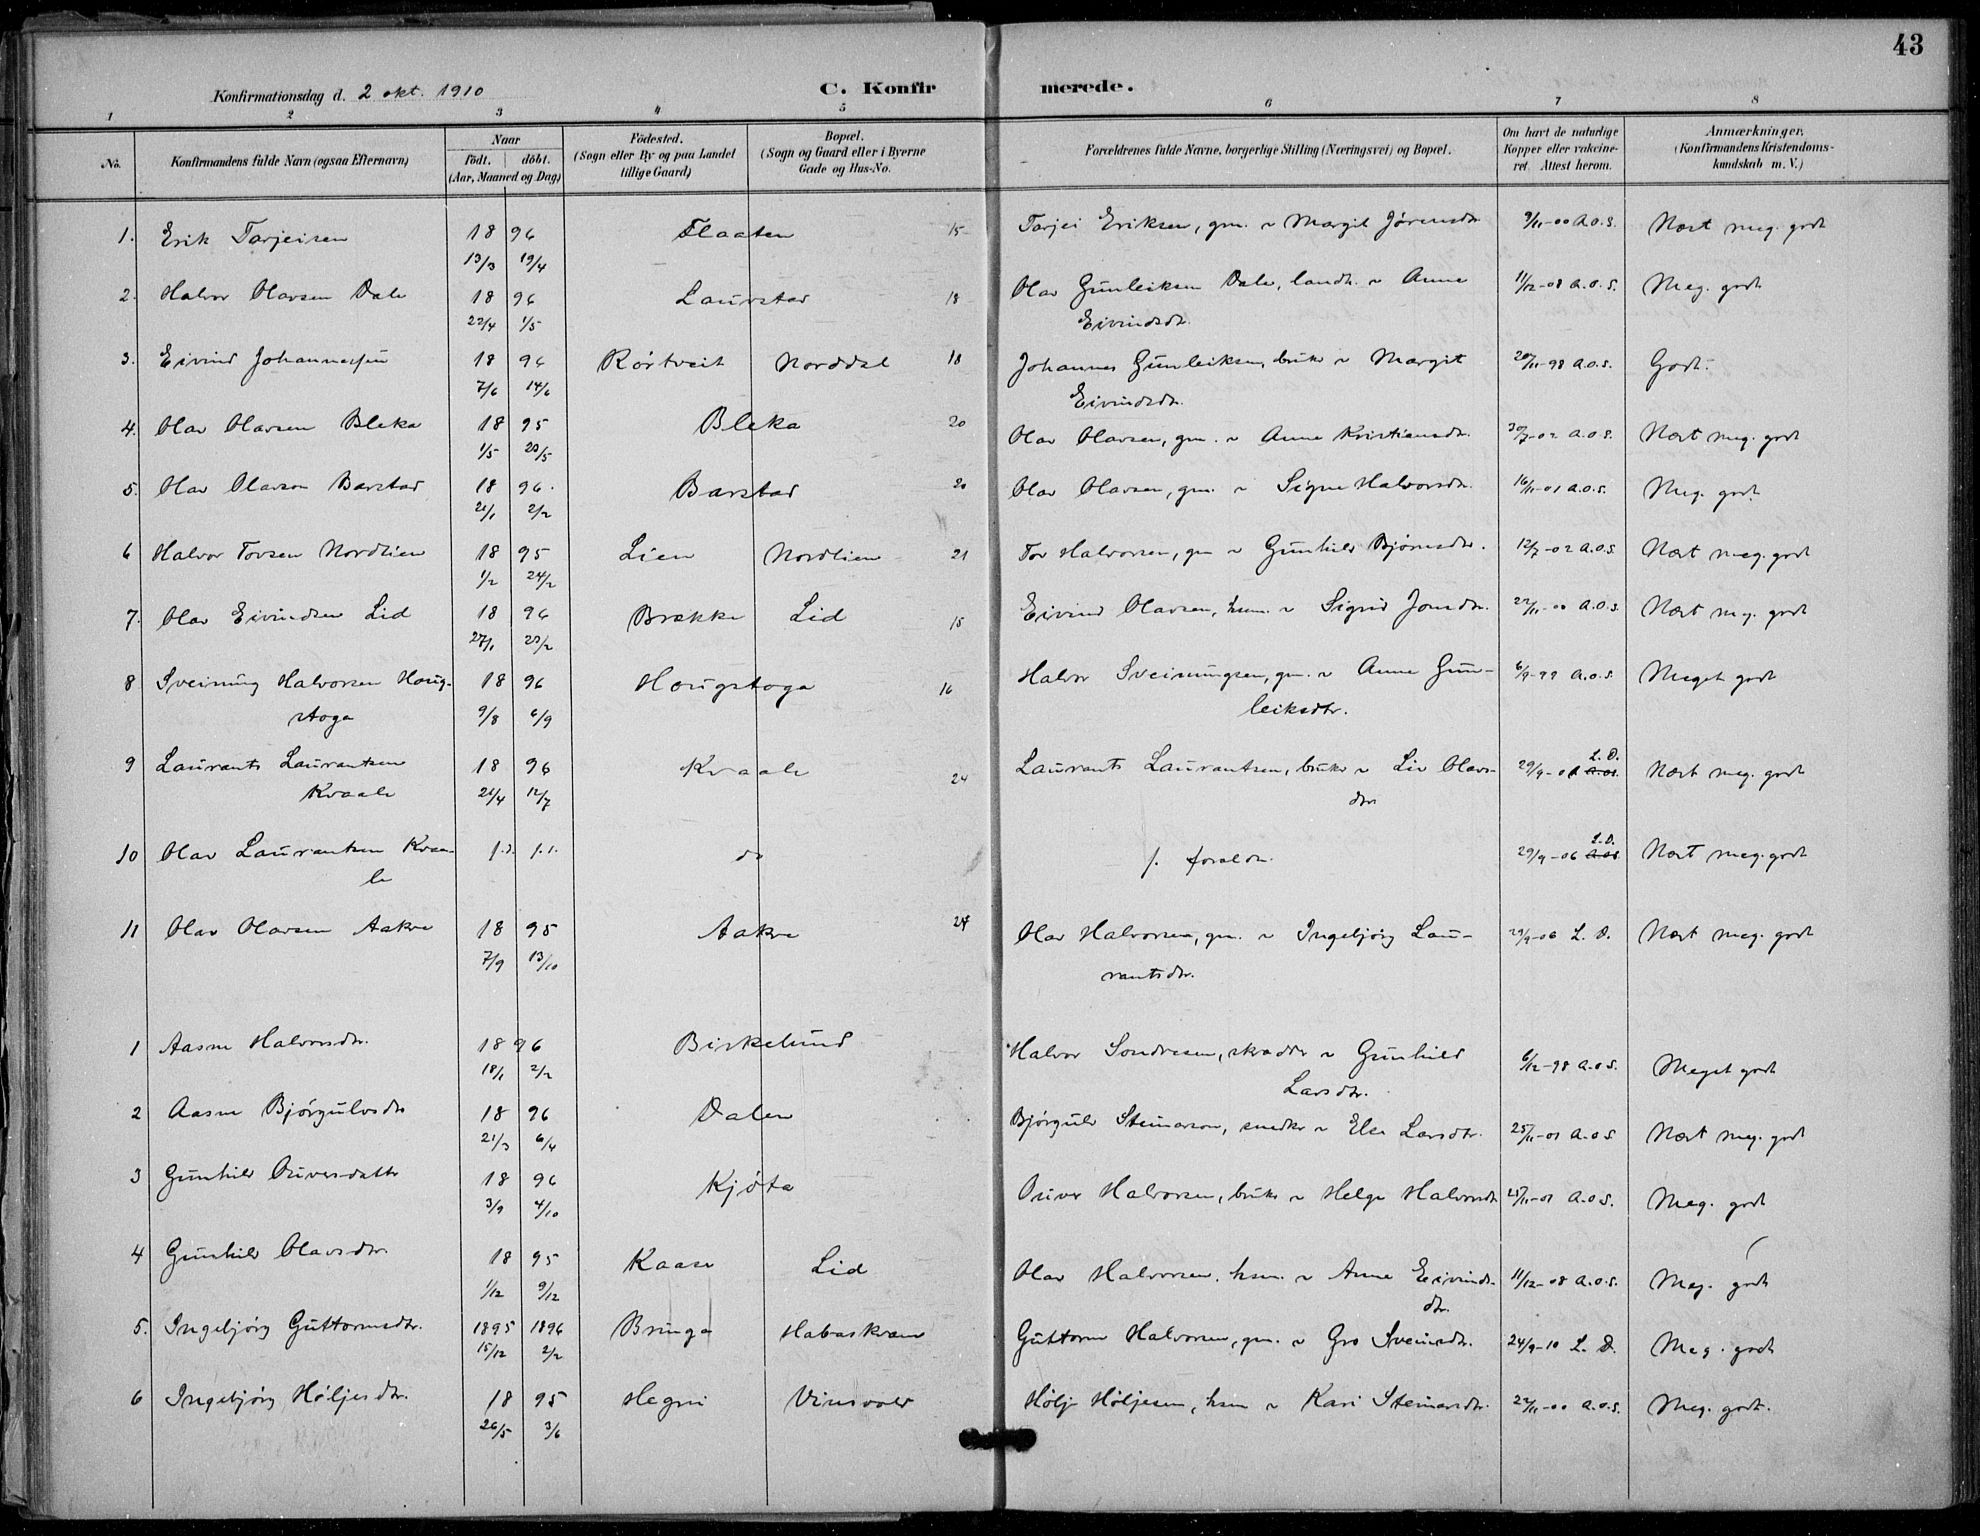 43
Konfirmationsdag d. 2 okt. 1910 C. Konfirmerede.
1 2 3 4 5 6 7 8
No. Konfirmandens fulde Navn (ogsaa Efternavn) Naar født. døbt. (Aar, Maaned og Dag) Fødested. (Sogn eller By og paa Landet tillige Gaard) Bopæl. (Sogn og Gaard eller i Byerne Gade og Hus-No. Forældrenes fulde Navne, borgerlige Stilling (Næringsvei) og Bopæl. Om havt de naturlige Kopper eller vakcineret. Attest herom. Anmærkninger. (Konfirmandens Kristendomskundskab m. V.)
1. Erik Tarjeisen 18 96 Flaaten 15 Tarjei Eriksen, gm. & Margit Jørensdtr. 9/11-00 A.O.S. Næst meg. godt
13/3 19/4
2. Halvor Olavsen Dale 18 96 Laurstad 18 Olav Gunleiksen Dale, landh. & Anne 11/12-08 A.O.S. Meg. godt
22/4 1/5 Eivindsdtr.
3. Eivind Johannessen 18 96 Rørtveit Norddal 18 Johannes Gunleiksen, bruker & Margit 20/11-98 A.O.S. Godt.
7/6 14/6 Eivindsdtr.
4. Olav Olavsen Bleka 18 95 Bleka 20 Olav Olavsen, gm. & Anne Kristiansdtr. 30/7-02 A.O.S. Næst meg. godt
1/5 23/5
5. Olav Olavson Barstad 18 96. Barstad 20 Olav Olavsen, gm. & Signe Halvorsdtr. 16/11-01 A.O.S. Meg. godt
21/1 2/2
6 Halvor Tovsen Nordlien 18 95 Lien Nordlien 21 Tov Halvorsen, gm & Gunhild Bjørnsdtr. 12/7-02 A.O.S. Næst meg. godt
1/2 24/2
7. Olav Eivindsen Lid 18 96 Brække Lid 15 Eivind Olavsen, hsm. & Sigrid Jonsdtr. 22/11-00 A.O.S. Næst meg. godt
27/1 23/2
8 Sveinung Halvorsen Houg- 18 96 Hougstoga 16 Halvor Sveinungsen, gm. & Anne Gun- 6/9-99 A.O.S. Meget godt
stoga 9/8 6/9 leiksdtr.
9 Laurants Laurantsen 18 96 Kvaale 24 Laurants Laurantsen, bruker & Liv Olavs- 29/9-06 A.O.S. L.D. Næst meg. godt
Kvaale 21/4 12/7 dtr
10 Olav Laurantsen Kvaa- f.1. f.1. do f. foræld. 29/9-06 A.O.S. L.D. Næst meg. godt
le
11 Olav Olavsen Aakre 18 95 Aakre 24 Olav Halvorsen, gm. & Ingebjørg Lau- 29/9-06 L. D. Næst meg. godt
7/9 13/10 rantsdtr.
1 Aasne Halvorsdtr. 18 96 Birkelund Halvor Sondresen, skrædder & Gunhild 6/12-98 A.O.S. Meget godt
18/1 2/2 Larsdtr.
2 Aasne Bjørgulvsdtr 18 96 Dalen Bjørgulv Steinarson, snedker & Else Larsdtr. 25/11-01 A.O.S Næst meg. godt
21/3 6/4
3 Gunhild Ouversdatter 18 96 Kjøta Ouver Halvorsen, bruker & Helge Halvorsdtr 25/11-01 A.O.S. Meg. godt
3/9 4/10
4 Gunhild Olavsdtr. 18 95 Kaasa Lid Olav Halvorsen, hsm. & Anne Eivinds- 11/12-08 A.O.S. Meg. godt
1/12 9/12 dtr.
5. Ingebjørg Guttormsdtr. 1895 1896 Bringa Habaskvam Guttorm Halvorsen, gm. & Gro Sveinsdtr. 24/9-10 L. D. Meg. godt
15/12 2/2
6 Ingebjørg Høljesdtr. 18 95 Hegni Vinsvold Hølje Høljesen, hsm & Kari Steinarsdtr. 22/11-00 A.O.S. Meg. godt.
26/5 3/6